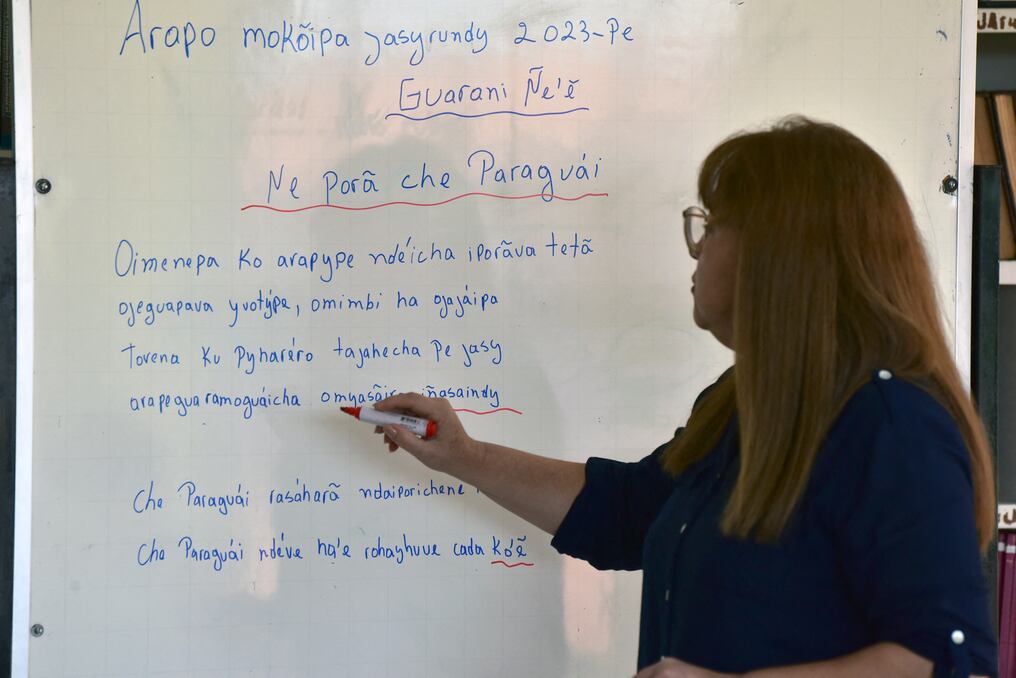 Arapo mokõipa jasyrundy 2023-Pe
Guarani Ñe'ẽ
Ne porã che Paraguái
Oimenepa Ko arapype ndéicha iporãva tetã
ojeguapava yvotýpe, omimbi ha ojajáipa
Tovena Ku Pyharéro tajahecha Pe jasy
arapeguaramoguáicha iñasaindy
Che Paraguái rasáharã ndaiporichene
Che Paraguái ndéve ha'e rohayhuve cada Ko'ẽ